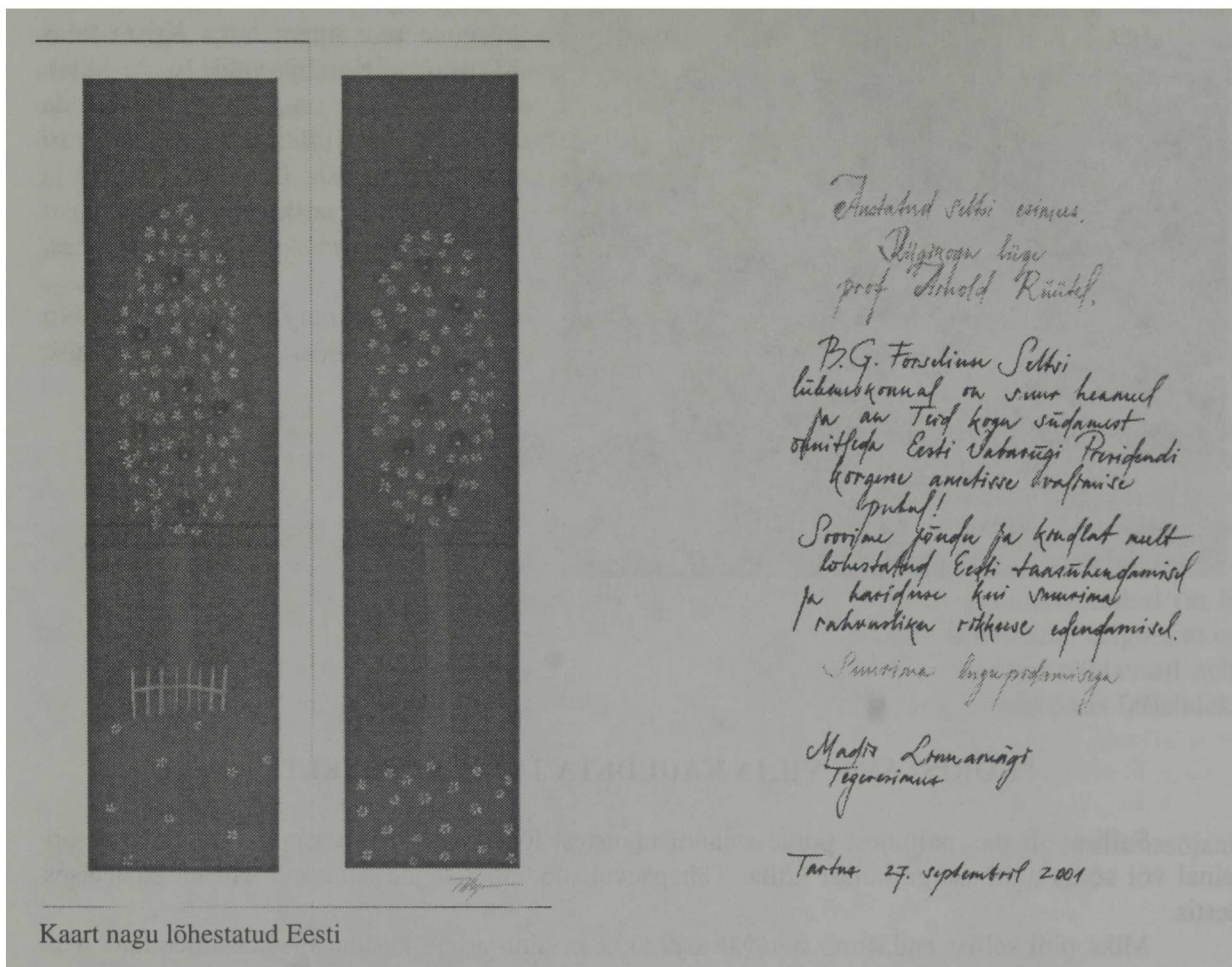 Austatud Seltsi esimees,
Riigikogu liige
prof Arnold Rüütel.
B.G. Forseliuse Seltsi
liikmeskonnal on suur heameel
ja au Teid kogu südamest
õnnitleda Eesti Vabariigi Presidendi
kõrgesse ametisse valimise
puhul!
Soovime jõudu ja kindlat meelt
lõhestatud Eesti taasühendamisel
ja hariduse kui suurima
rahvusliku rikkuse edendamisel.
Suurima lugupidamisega
Madis Linnamägi
Tegevesimees
Tartus 27. septembril 2001
Kaart nagu lõhestatud Eesti